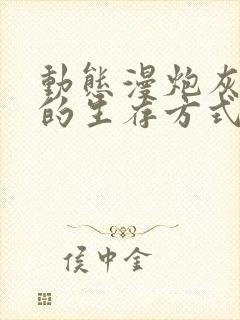 動態漫炮灰
的生存方式
侯中金